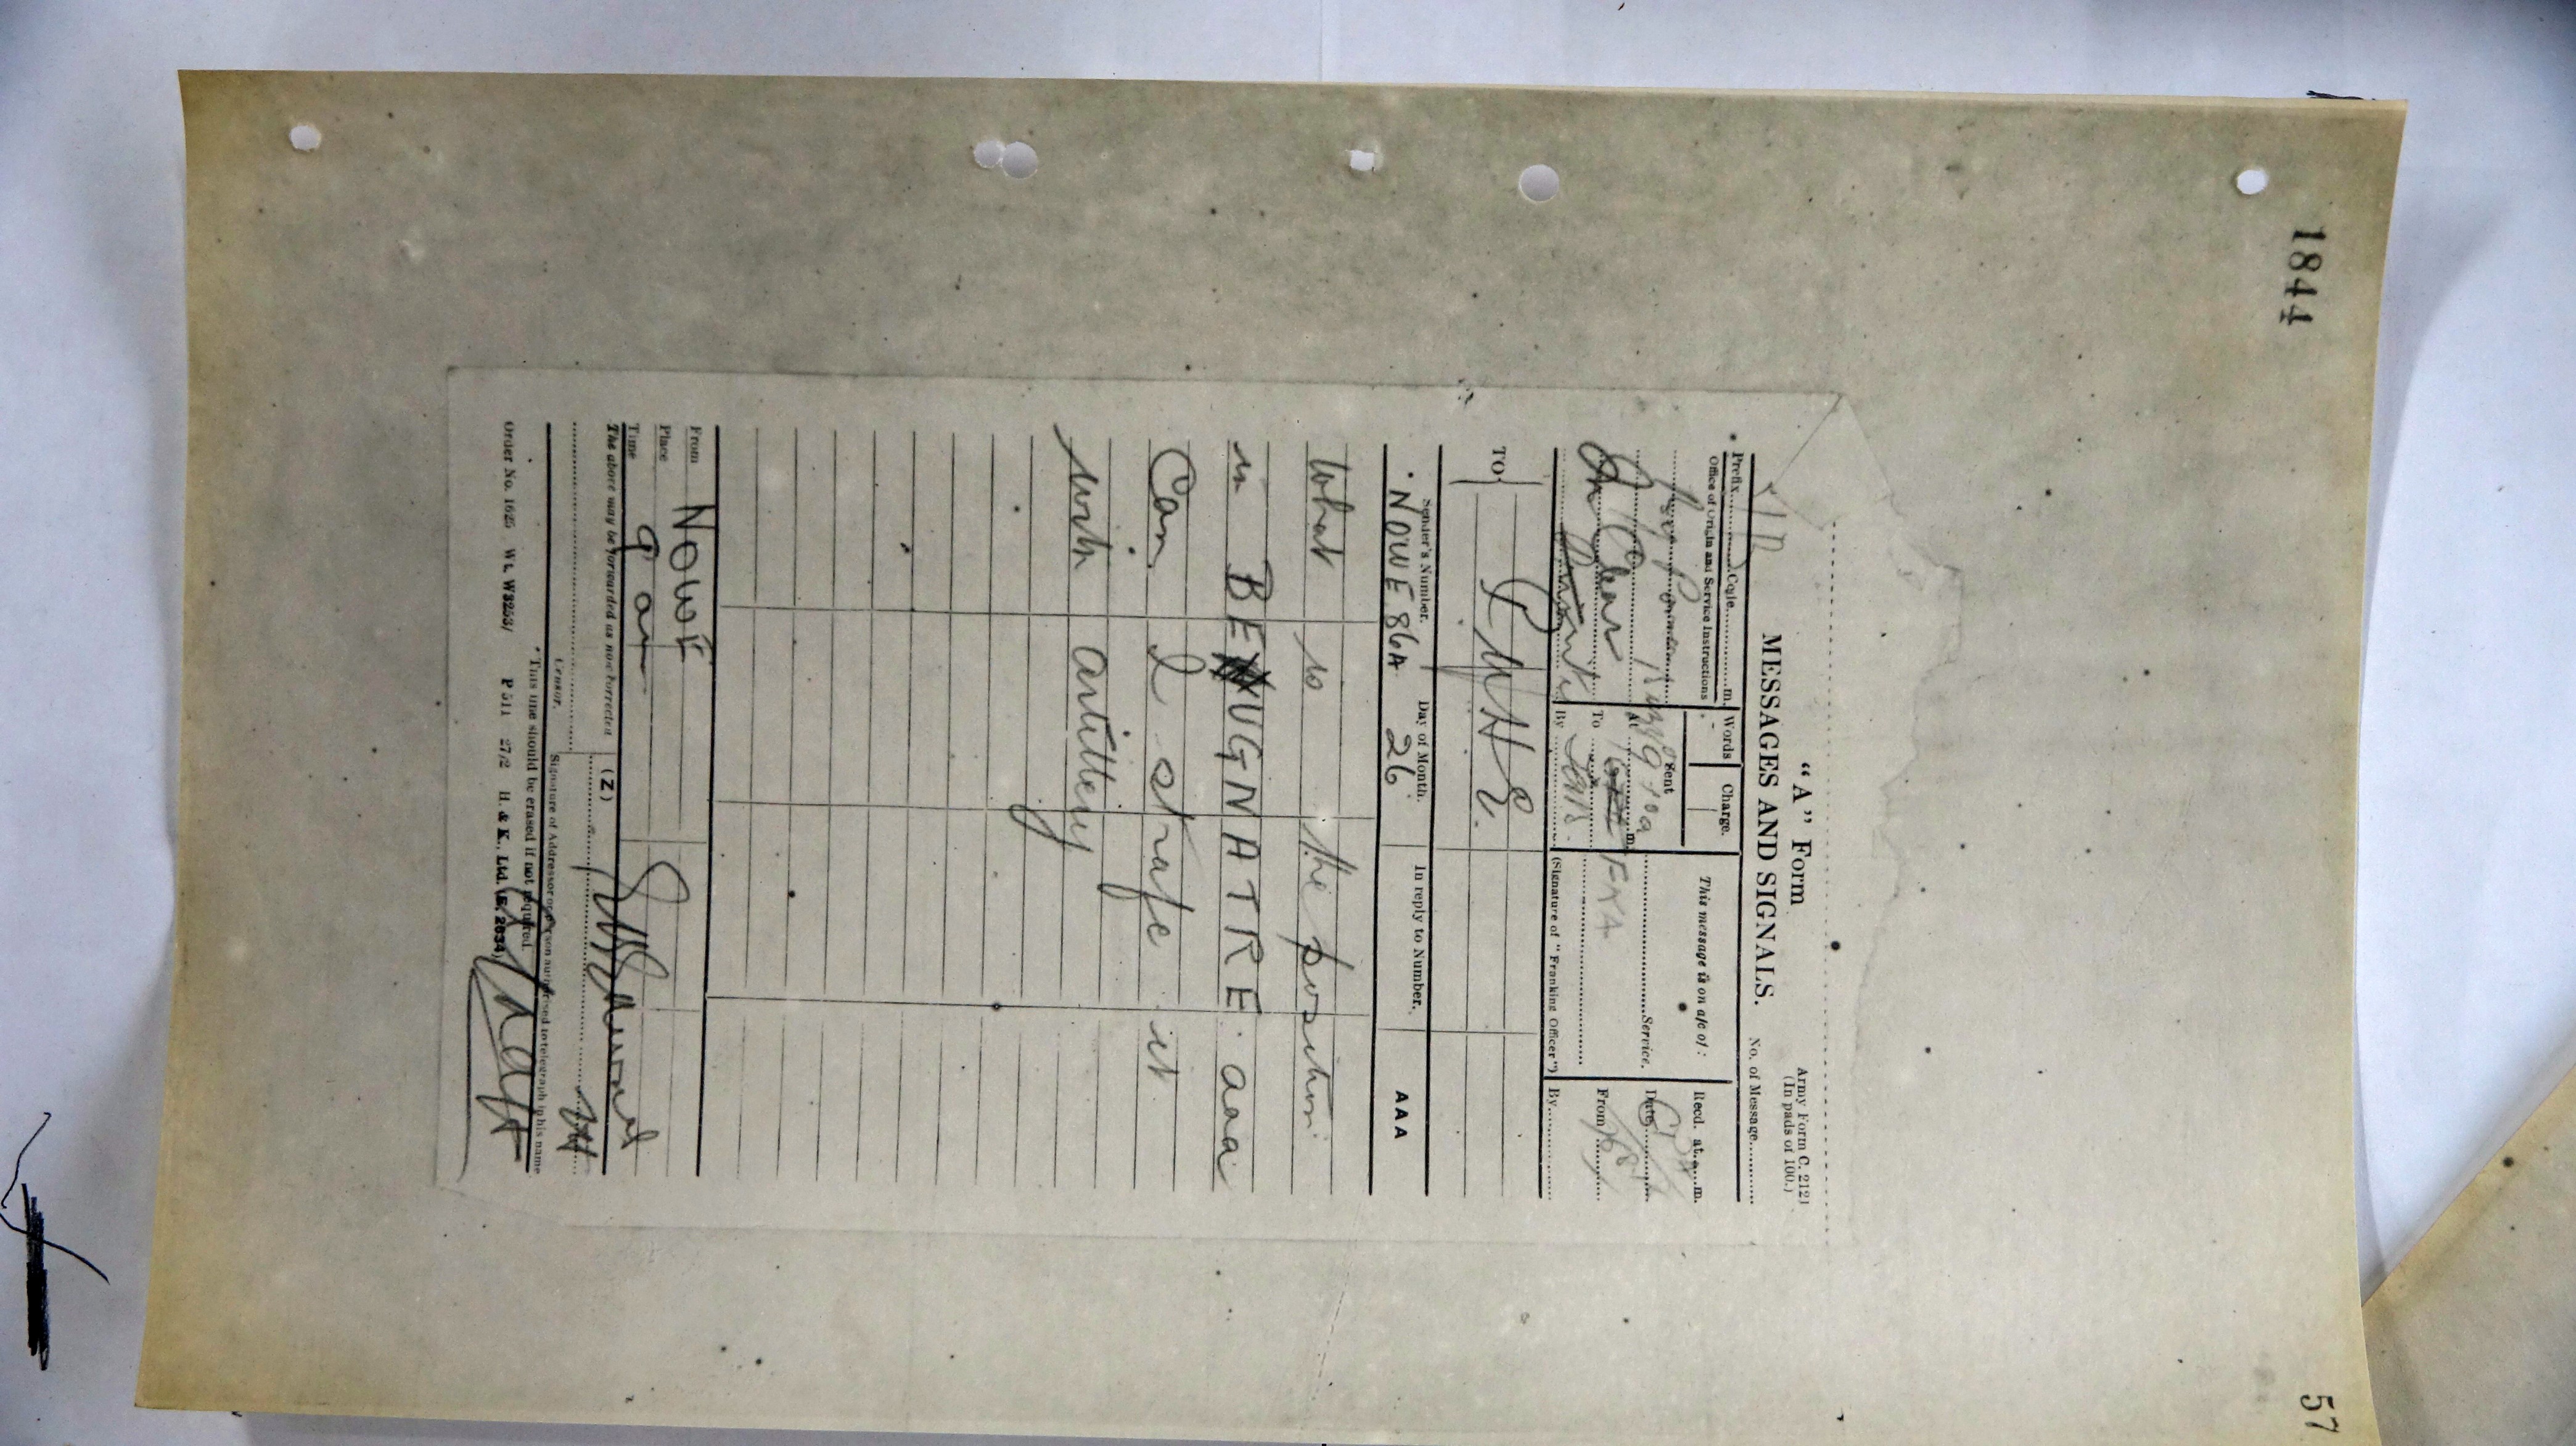 1844
57
"A" Form
Army Form C. 2121
(In pads of 100.)
MESSAGES AND SIGNALS.
No. of Message..........
Prefix..........Code..........m.
Words
Charge.
This message is on a/c of :
Recd. at....m.
Office of Origin and Service Instructions
Sent
At ..........m.
..........Service.
Date..........
To
From..........
By..........
(Signature of "Franking Officer")
By..........
TO
Sender's Number.
Day of Month.
In reply to Number.
AAA
NOWE 86A
26
What is the position
in BEUGNATRE. aaa
Can I strafe it
with artillery
From NOWE
Place
Time 9 am
The above may be forwarded as now corrected
(Z)
Censor.
Signature of Addressor or person authorised to telegraph in his name
* This line should be erased if not required.
Order No. 1625 Wt. W3253/ P 511 27/2 H. & K., Ltd. (E. 2634)